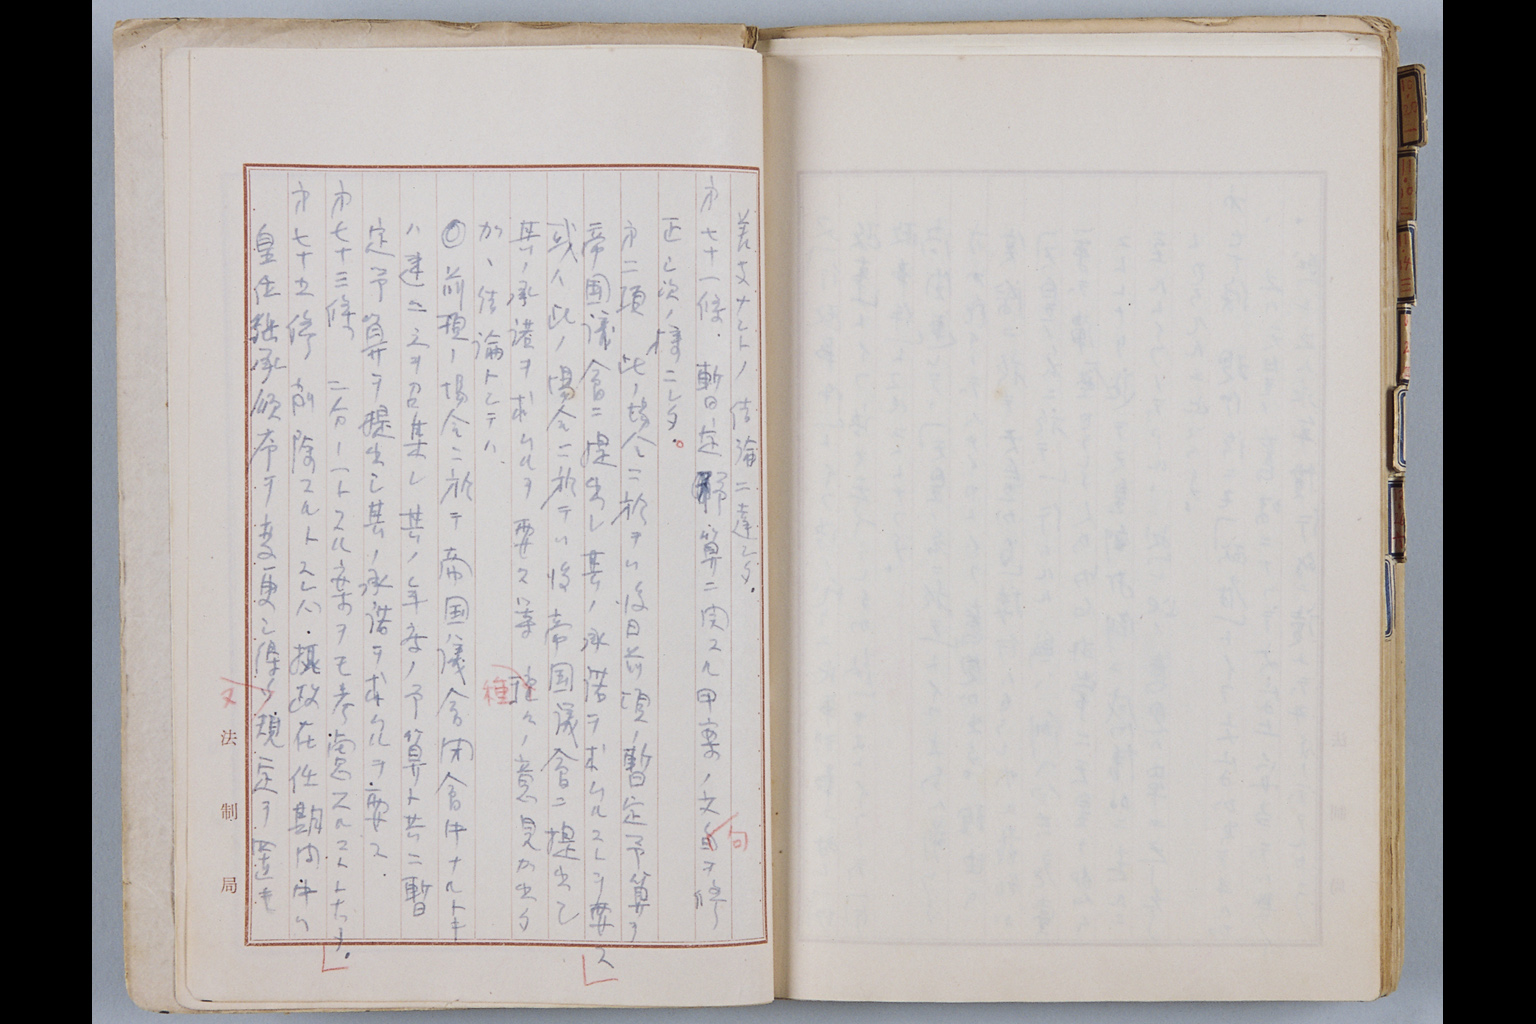 差支ナシトノ結論ニ達シタ.
㐧七十一條. 暫定予算ニ関スル甲案ノ文句ヲ修
正シ次ノ様ニシタ。
㐧二項 此ノ場合ニ於テハ後日前項ノ暫定予算ヲ
帝国議會ニ提出シ其ノ承諾ヲ求ムルコトヲ要ス
或ハ此ノ場合ニ於テハ後帝国議會ニ提出シ
其ノ承諾ヲ求ムルヲ要ス等 種々ノ意見カ出タ
カ、結論トシテハ、
◎前項ノ場合ニ於テ帝国議會閉會中ナルトキ
ハ速ニ之ヲ召集シ其ノ年度ノ予算ト共ニ暫
定予算ヲ提出シ其ノ承諾ヲ求ムルヲ要ス.
㐧七十三條 二分ノ一トスル案ヲモ考慮スルコトトナッタ.
㐧七十五條 削除スルトスレハ.摂政在任期間中ハ
皇位継承順序ヲ変更シ得ヌ規定ヲ
種
句
又
法制局